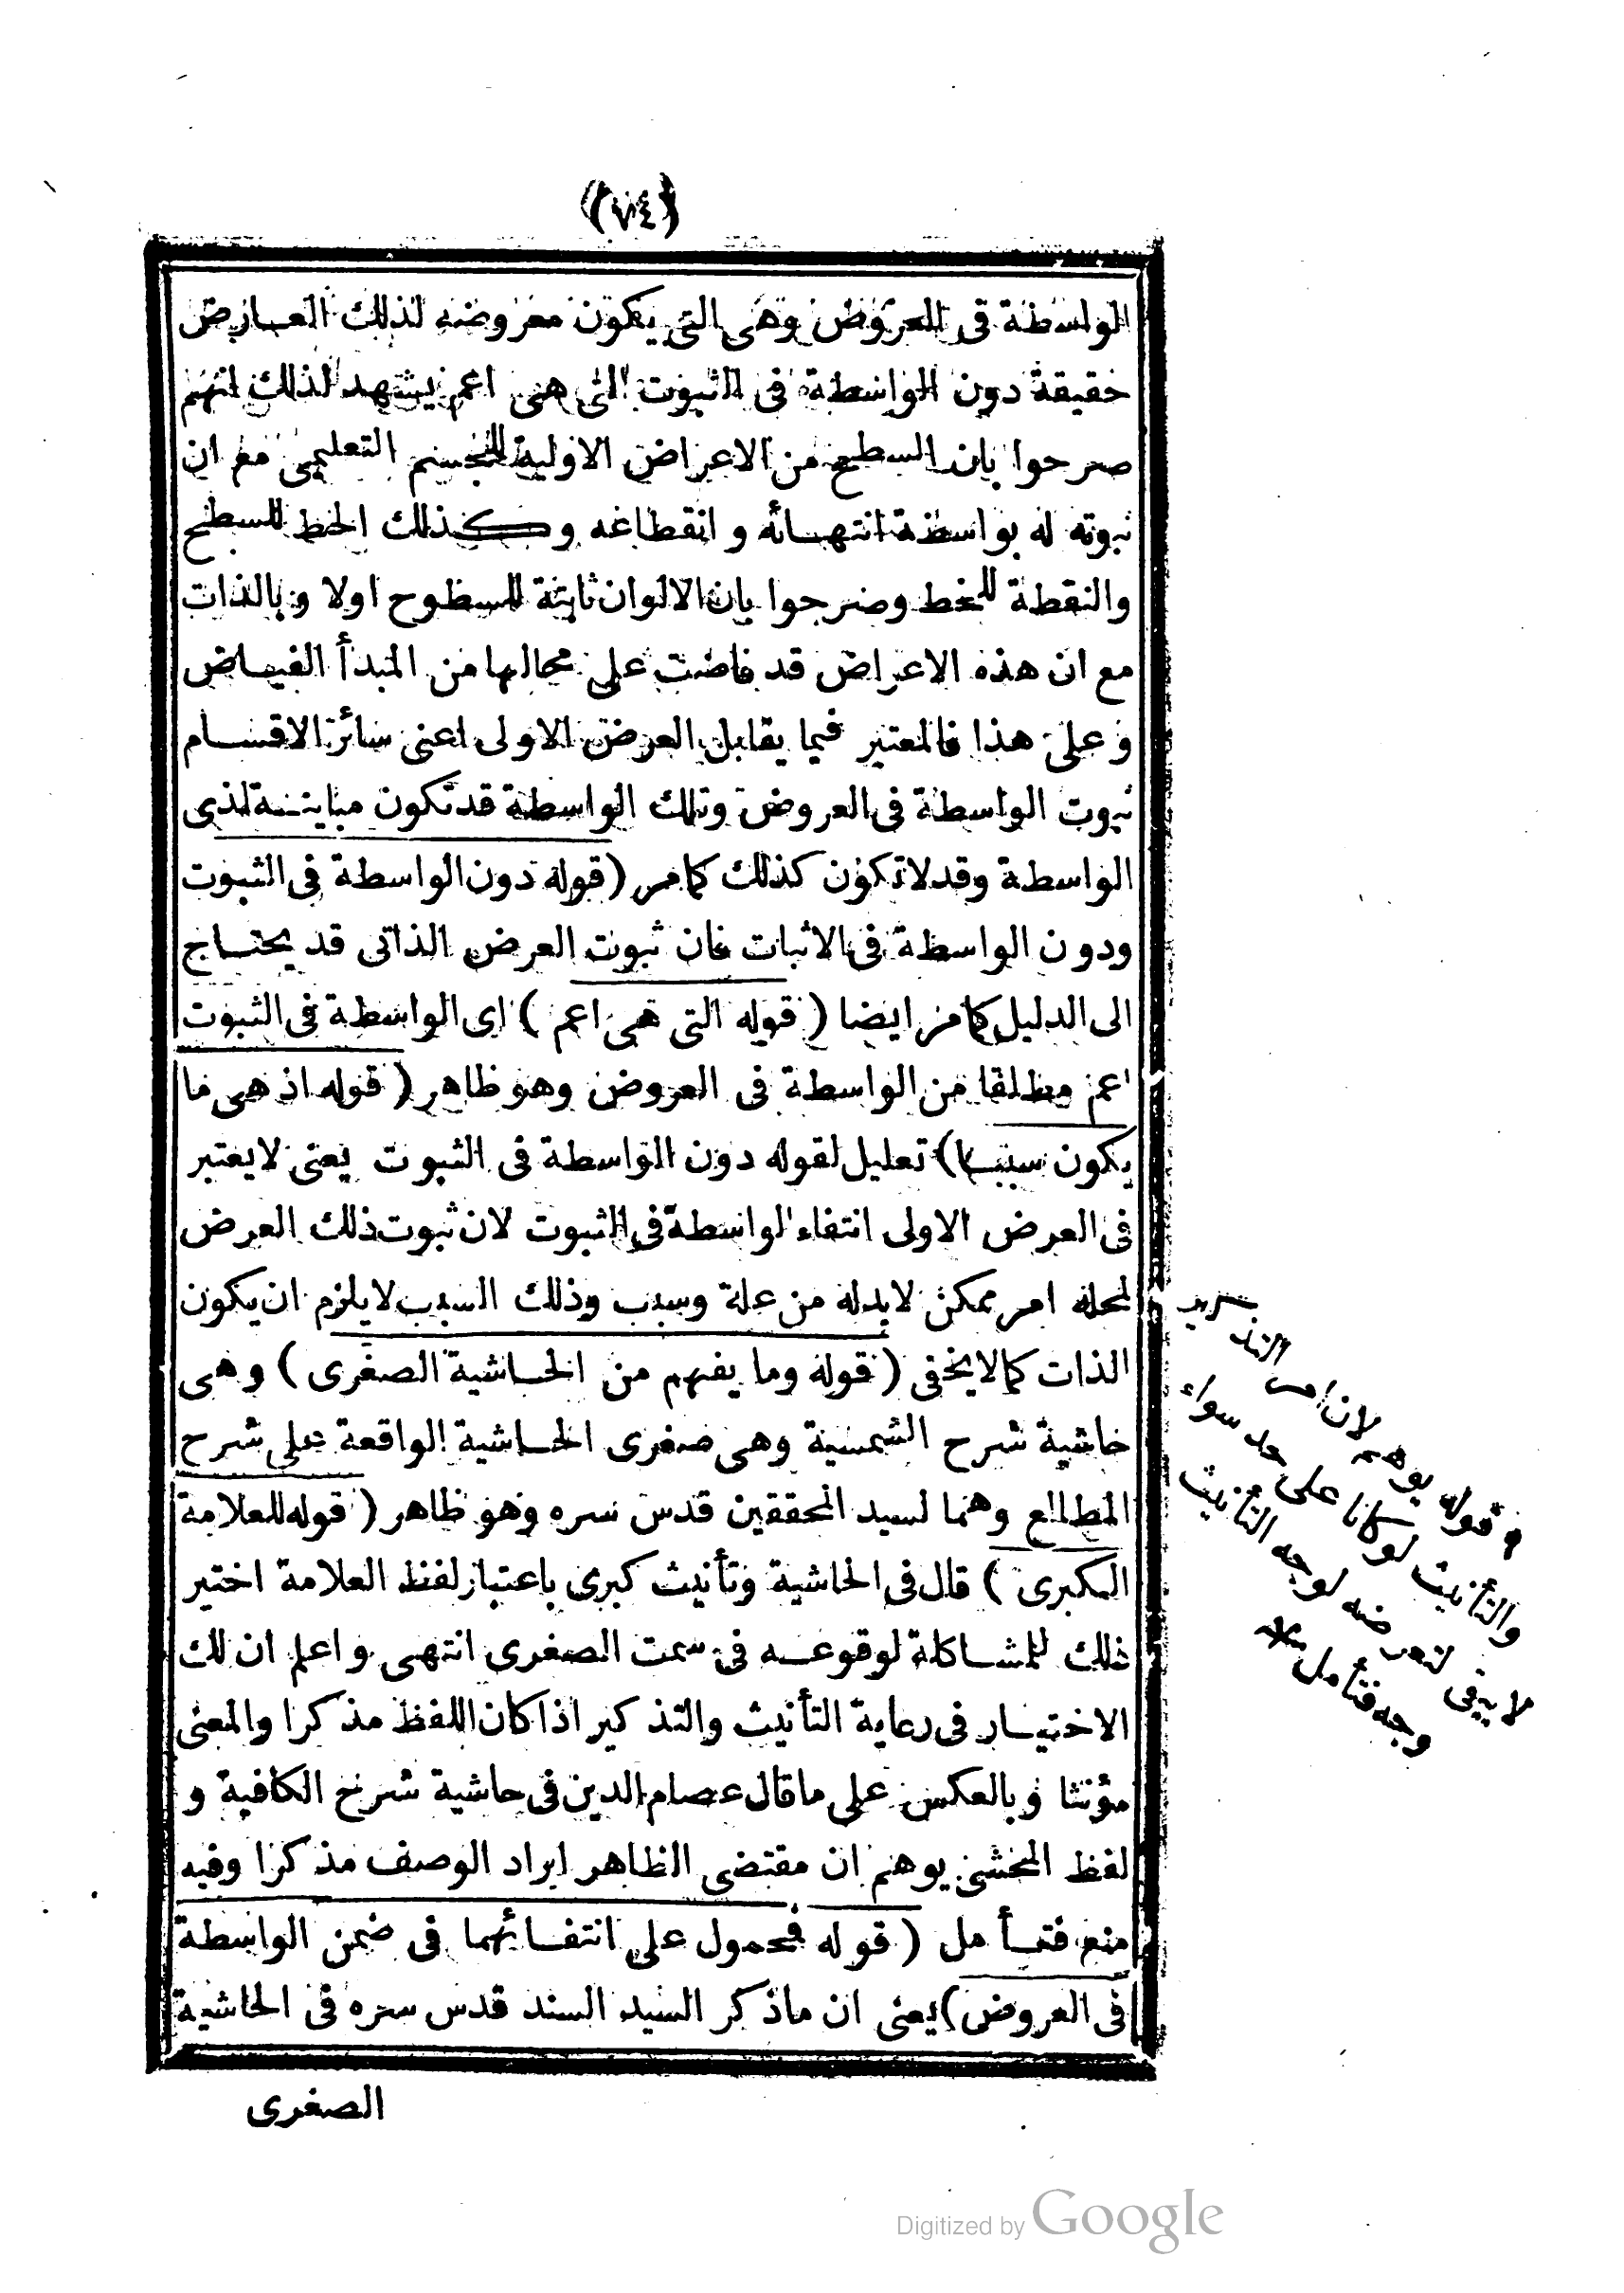 (٧٤)
الواسطة فى العروض وهى التى يكون معروضه لذلك العارض
حقيقة دون الواسطة فى الثبوت التى هى اعم يشهد لذلك انهم
صرحوا بان السطح من الاعراض الاولية للجسم التعليمى مع ان
ثبوته له بواسطة انتهائه و انقطاعه وكذلك الخط للسطح
والنقطة للخط وصرحوا بان الالوان ثابتة للسطوح اولا و بالذات
مع ان هذه الاعراض قد فاضت على محالها من المبدأ الفياض
و على هذا فالمعتبر فيما يقابل العرض الاولى اعنى سائر الاقسام
ثبوت الواسطة فى العروض وتلك الواسطة قد تكون مباينة لذى
الواسطة وقد لا تكون كذلك كما مر (قوله دون الواسطة فى الثبوت
ودون الواسطة فى الاثبات فان ثبوت العرض الذاتى قد يحتاج
الى الدليل كما مر ايضا (قوله التى هى اعم) اى الواسطة فى الثبوت
اعم مطلقا من الواسطة فى العروض وهو ظاهر (قوله اذ هى ما
يكون سببا) تعليل لقوله دون الواسطة فى الثبوت يعنى لا يعتبر
فى العرض الاولى انتفاء الواسطة فى الثبوت لان ثبوت ذلك العرض
لمحله امر ممكن لا بد له من علة وسبب وذلك السبب لا يلزم ان يكون
الذات كما لا يخفى (قوله وما يفهم من الحاشية الصغرى) وهى
حاشية شرح الشمسية وهى صغرى الحاشية الواقعة على شرح
المطالع وهما لسيد المحققين قدس سره وهو ظاهر (قوله للعلامة
الكبرى) قال فى الحاشية وتأنيث كبرى باعتبار لفظ العلامة اختير
ذلك للمشاكلة لوقوعه فى سمت الصغرى انتهى و اعلم ان لك
الاختيار فى رعاية التأنيث والتذكير اذا كان اللفظ مذكرا والمعنى
مؤنثا و بالعكس على ما قال عصام الدين فى حاشية شرح الكافية و
لفظ المحشى يوهم ان مقتضى الظاهر ايراد الوصف مذكرا وفيه
منع فتأمل (قوله فمحمول على انتفائهما فى ضمن الواسطة
فى العروض) يعنى ان ما ذكر السيد السند قدس سره فى الحاشية
الصغرى
و قوله يوهم لان امر التذكير
والتأنيث لو كانا على حد سواء
لا يبقى لتعرضه لوجه التأنيث
وجه فتأمل
Digitized by Google